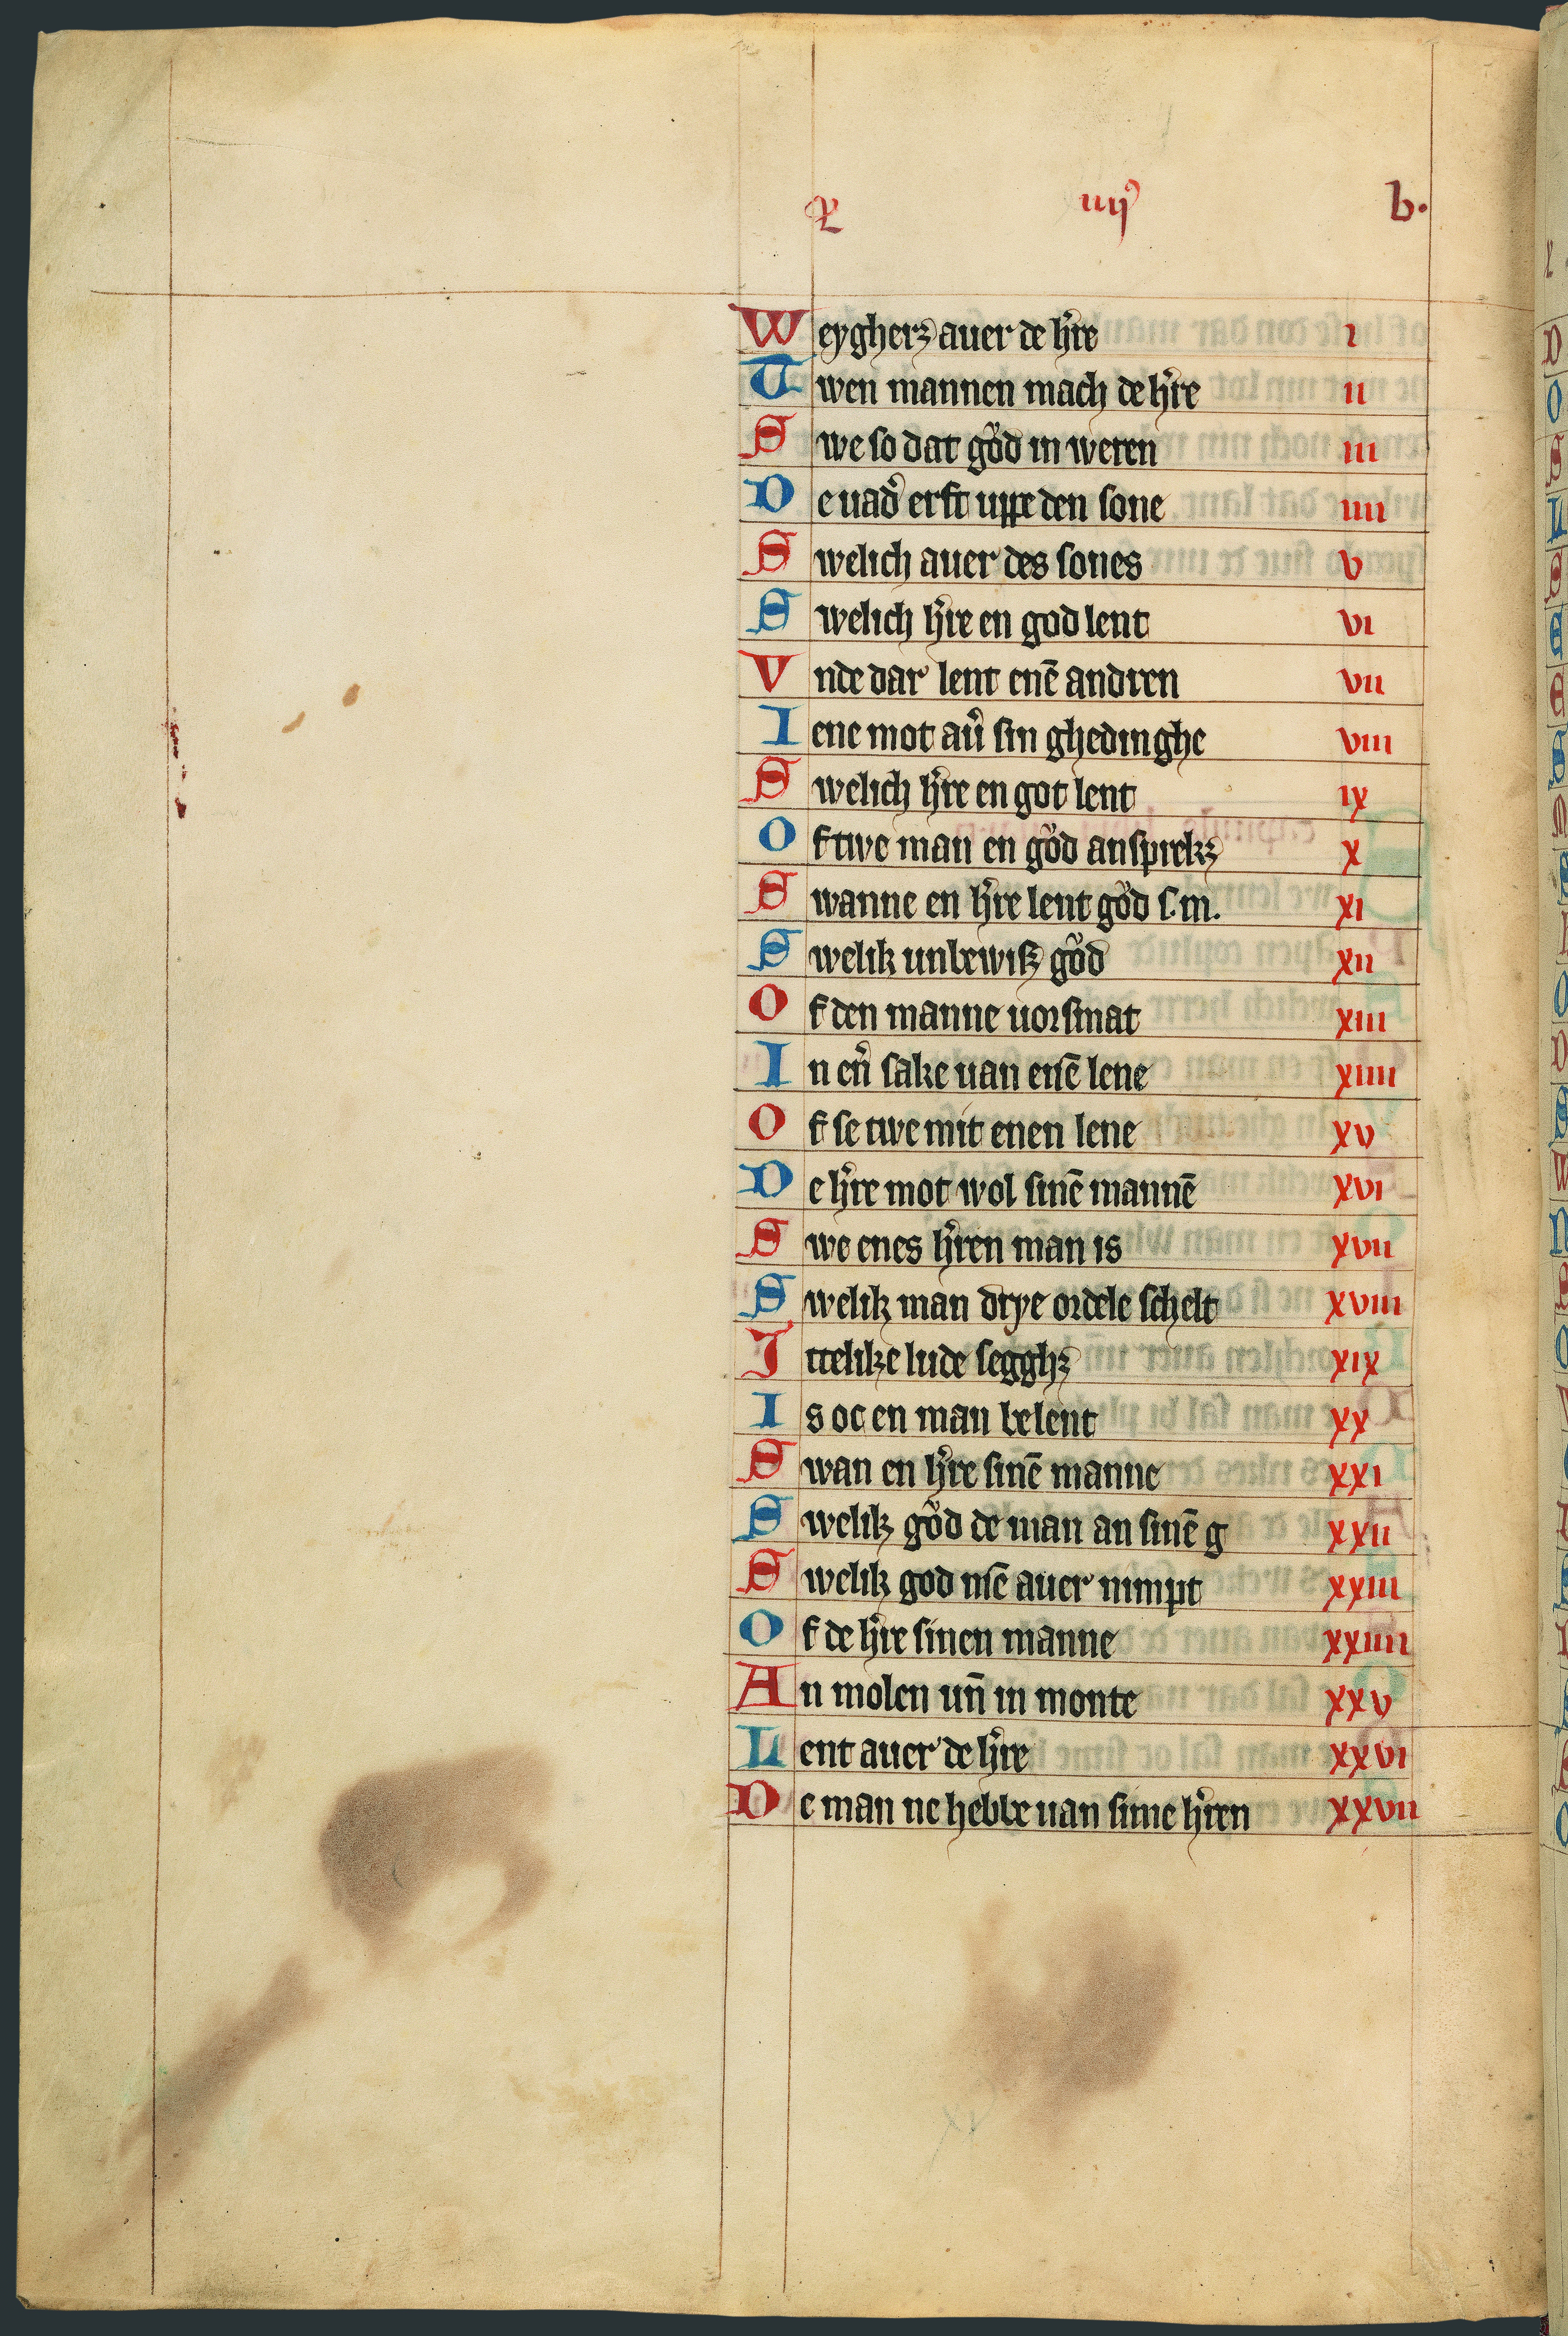 iiij b.
Weygherꝫ auer de h̾re i
Twen mannen mach de h̾re ii
Swe so dat goͮd in weren iii
De uad̾ erft uppe den sone iiii
Swelich auer des sones v
Swelich h̾re en god lent vi
Vnde dar lent enē andren vii
Iene mot au̾ sin ghedinghe viii
Swelich h̾re en got lent ix
Of twe man en goͮd an sprekꝫ x
Swanne en h̾re lent goͮd s. m. xi
Swelik unbewisꝫ goͮd xii
Of den manne uorsmat xiii
In en̾ sake uan eisē lene xiiii
Of se twe mit enen lene xv
De h̾re mot wol sinē mannē xvi
Swe enes h̾ren man is xvii
Swelik man drye ordele schelt xviii
Ittelike lude segghꝫ xix
Is oc en man belent xx
Swan en h̾re sinē manne xxi
Swelik goͮd de man an sinē g xxii
Swelik god nisē auer nimpt xxiii
Of de h̾re sinen manne xxiiii
An molen un̄ in monte xxv
Lent auer de h̾re xxvi
De man ne hebbe uan sime h̾ren xxvii